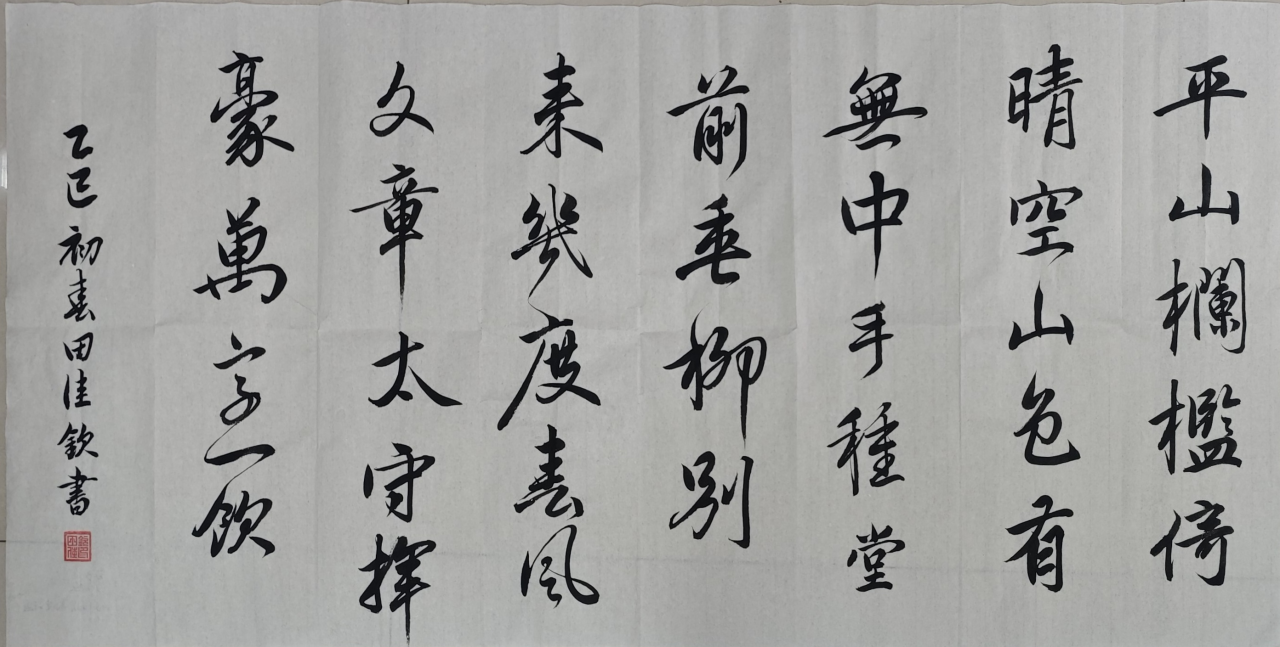 平山欄檻倚
晴空山色有
無中手種堂
前垂柳別
来幾度春風
文章太守揮
豪萬字一飲
乙巳初春田佳欽書